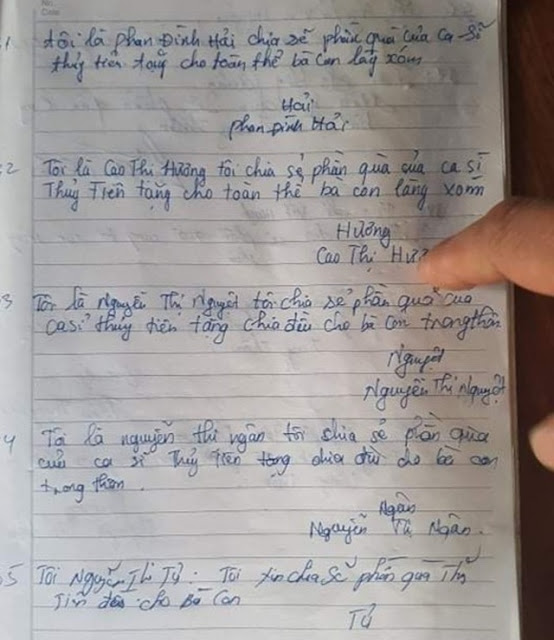 No:
Date:
1 tôi là phan Đình Hải chia sẽ phần quà của ca sĩ
thủy tiên tặng cho toàn thể bà con láng xóm
Hải
phan Đình Hải
2 Tôi là Cao Thị Hương tôi chia sẻ phần quà của ca sĩ
Thủy Tiên tặng cho toàn thể bà con láng xóm
Hương
Cao Thị Hươ
3 Tôi là Nguyễn Thị Nguyệt tôi chia sẻ phần quà của
ca sĩ thủy tiên tặng chia đều cho bà con trong thôn
Nguyệt
Nguyễn Thị Nguyệt
4 Tôi là nguyễn thi ngân tôi chia sẻ phần qùa
của ca sĩ Thủy Tiên tặng chia đều cho bà con
trong thôn.
Ngân
Nguyễn Thị Ngân.
5 Tôi Nguyễn Thị Tứ: Tôi xin chia Sẽ phần quà Thủy
Tiên đều cho Bà Con
Tứ